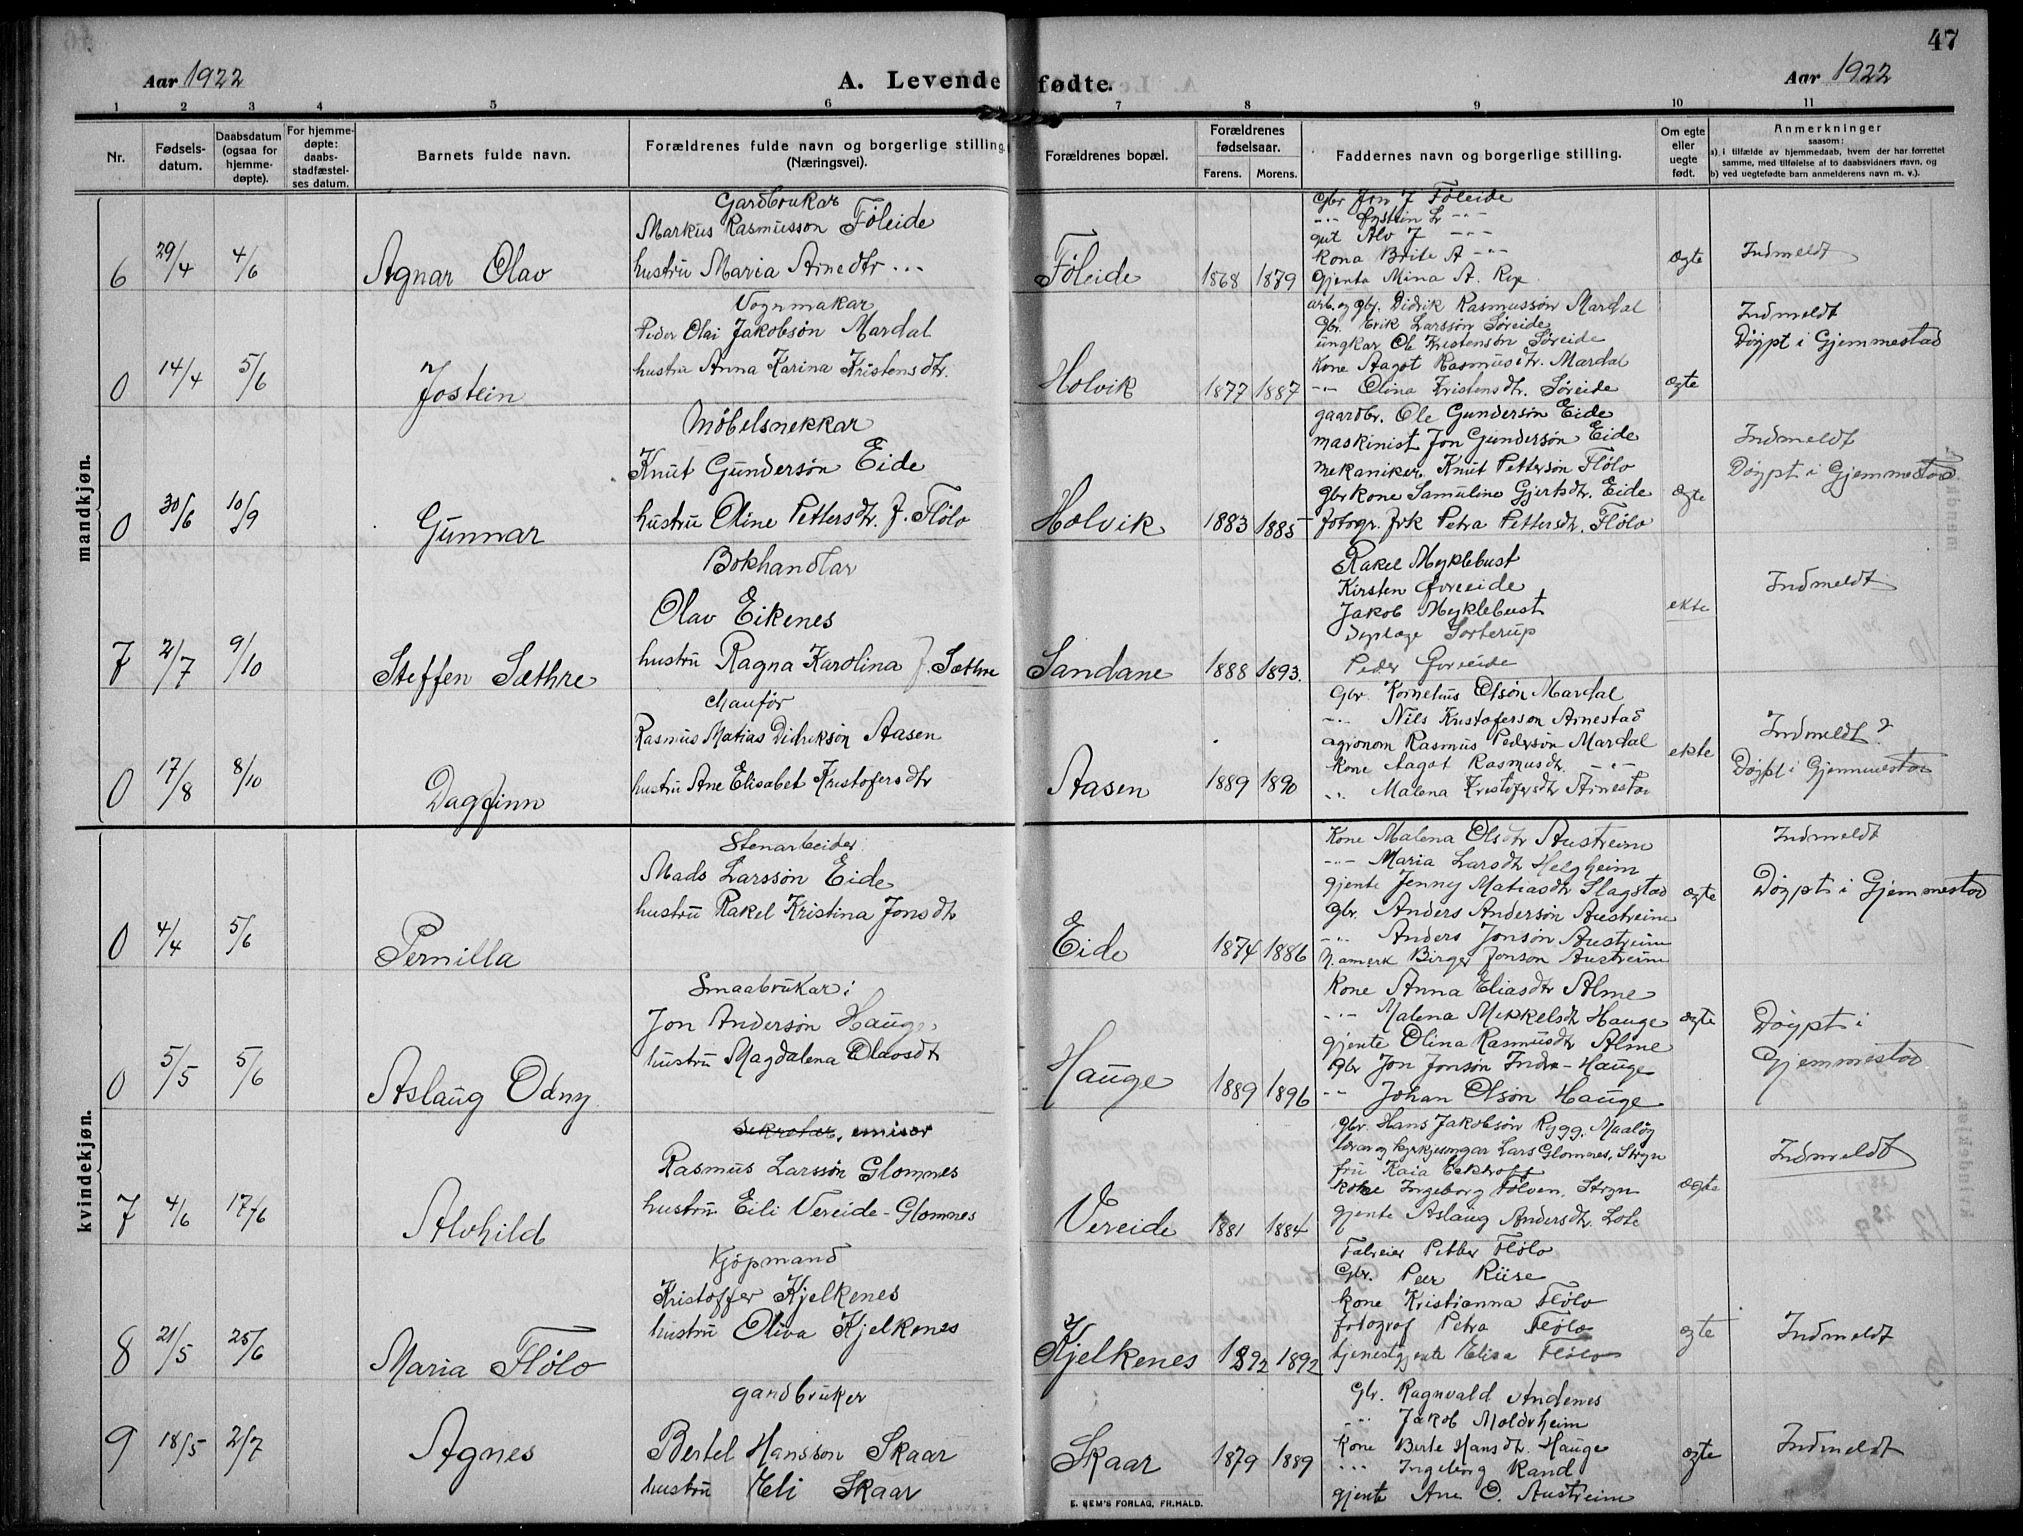 47
Aar 1922
A. Levende fødte.
Aar 1922
1 2 3 4 5 6 7 8 9 10 11
Nr.
Fødsels-
datum.
Daabsdatum
(ogsaa for
hjemme-
døpte).
For hjemme-
døpte:
daabs-
stadfæstel-
ses datum.
Barnets fulde navn.
Forældrenes fulde navn og borgerlige stilling.
(Næringsvei).
Forældrenes bopæl.
Forældrenes
fødselsaar.
Farens. Morens.
Faddernes navn og borgerlige stilling.
Om egte
eller
uegte
født.
Anmerkninger
saasom:
a) i tilfælde av hjemmedaab, hvem der har forrettet
samme, med tilføielse af to daabsvidners navn, og
b) ved uegtefødte barn anmelderens navn m. v.).
mandkjøn.
6 29/4 4/6 Agnar Olav
Gardbrukar
Markus Rasmusson Føleide
hustru Maria Arnedtr - - -
Føleide 1868 1879
Gbr Jon J Føleide
- - - Øystein L - - -
gut Alv J - - -
kona Brite A - - -
gjenta Mina A.
Ægte
Indmeldt
0 14/4 5/6 Jostein
Vognmakar
Peder Olai Jakobsøn Mardal
hustru Anna Karina Kristensdtr.
Holvik 1877 1887
arb. og gbr. Didrik Rasmussøn Mardal
Gbr. Erik Larssøn Søreide
ungkar Ole Kristensøn Søreide
Kone Aagot Rasmusdtr. Mardal
- - - Olina Kristensdtr. Søreide
ægte
Indmeldt
Døypt i Gjemmestad
0 30/6 10/9 Gunnar
Møbelsnekkar
Knut Gundersøn Eide
hustru Oline Pettersdtr. f. Flølo
Holvik 1883 1885
gaardbr. Ole Gundersøn Eide
maskinist Jon Gundersøn Eide
mekaniker Knut Pettersøn Flølo
gbrkone Samuline Gjertsdtr. Eide
fotogr. frk Petra Pettersdtr. Flølo
Ægte
Indmeldt
Døypt i Gjemmestad
7 2/7 9/10 Steffen Sæthre
Bokhandlar
Olav Eikenes
hustru Ragna Karolina f. Sæthre
Sandane 1888 1893.
Rakel Myklebust
Kirsten Øvreeide
Jakob Myklebust
Sorterup
Peder
ekte
Indmeldt
0 17/8 8/10 Dagfinn
chauför
Rasmus Matias Didriksøn Aasen
hustru Ane Elisabet Kristofersdtr
Aasen 1889 1890
Gbr. Kornelius Olsøn Mardal
- - - Nils Kristoferson Arnestad
agronom Rasmus Pedersøn Mardal
kone Aagot Rasmusdtr. - - -
- - Malena Kristofersdtr Arnestad
ekte
Indmeldt?
Døypt i Gjemmestad
kvindekjøn.
0 4/4 5/6 Pernilla
Stenarbeider
Mads Larssøn Eide
hustru Rakel Kristina Jonsdtr
Eide 1874 1886
Kone Malena Olsdtr Austreim
- - - Maria Larsdtr Helgheim
gjente Jenny Matiasdtr Slagstad
Gbr. Anders Andersøn Austreim
- - - Anders Jonsøn Austreim
N. amerk Birger Jonson Austreim
ægte
Indmeldt
Døypt i Gjemmestad
0 5/5 5/6 Aslaug Odny
Smaabrukar i
Jon Andersøn Hauge
hustru Magdalena Olavsdtr
Hauge 1889 1896
Kone Anna Eliasdtr Alme
- - - Malena Mikkelsdtr Hauge
gjente Olina Rasmusdtr Alme
Gbr Jon Jonsøn Indre-Hauge
- - Johan Olsøn Hauge
ægte
Døypt i
Gjemmestad
7 4/6 17/6 Alvhild
sekretær, emisær
Rasmus Larssøn Glomnes
hustru Eili Vereide-Glomnes
Vereide 1881 1884
gbr. Hans Jakobsøn Rygg, Maaløy
lærar og kyrkjesongar Lars Glomnes, Stryn
fru Kaia
kone Ingeborg Tolven, Stryn
gjente Aslaug Andersdtr. Lote
ægte
Indmeldt
8 21/5 25/6 Maria Flølo
Kjøpmand
Kristoffer Kjelkenes
hustru Oliva Kjelkenes
Kjelkenes 1892 1892
Petter Flølo
Gbr. Peer Riise
kone Kristianna Flølo
fotograf Petra Flølo
tjenestgjente Elisa Flølo
ægte
Indmeldt
9 18/5 2/7 Agnes
gardbruker
Bertel Hansson Skaar
hustru Eli Skaar
Skaar 1879 1889
Gbr. Ragnvald Andenes
- - - Jakob Moldrheim
Kone Berte Hansdtr. Hauge
- - - Ingeborg Rand
gjente Ane O. Austreim
ægte
Indmeldt
E. SEM'S FORLAG, FR.HALD.